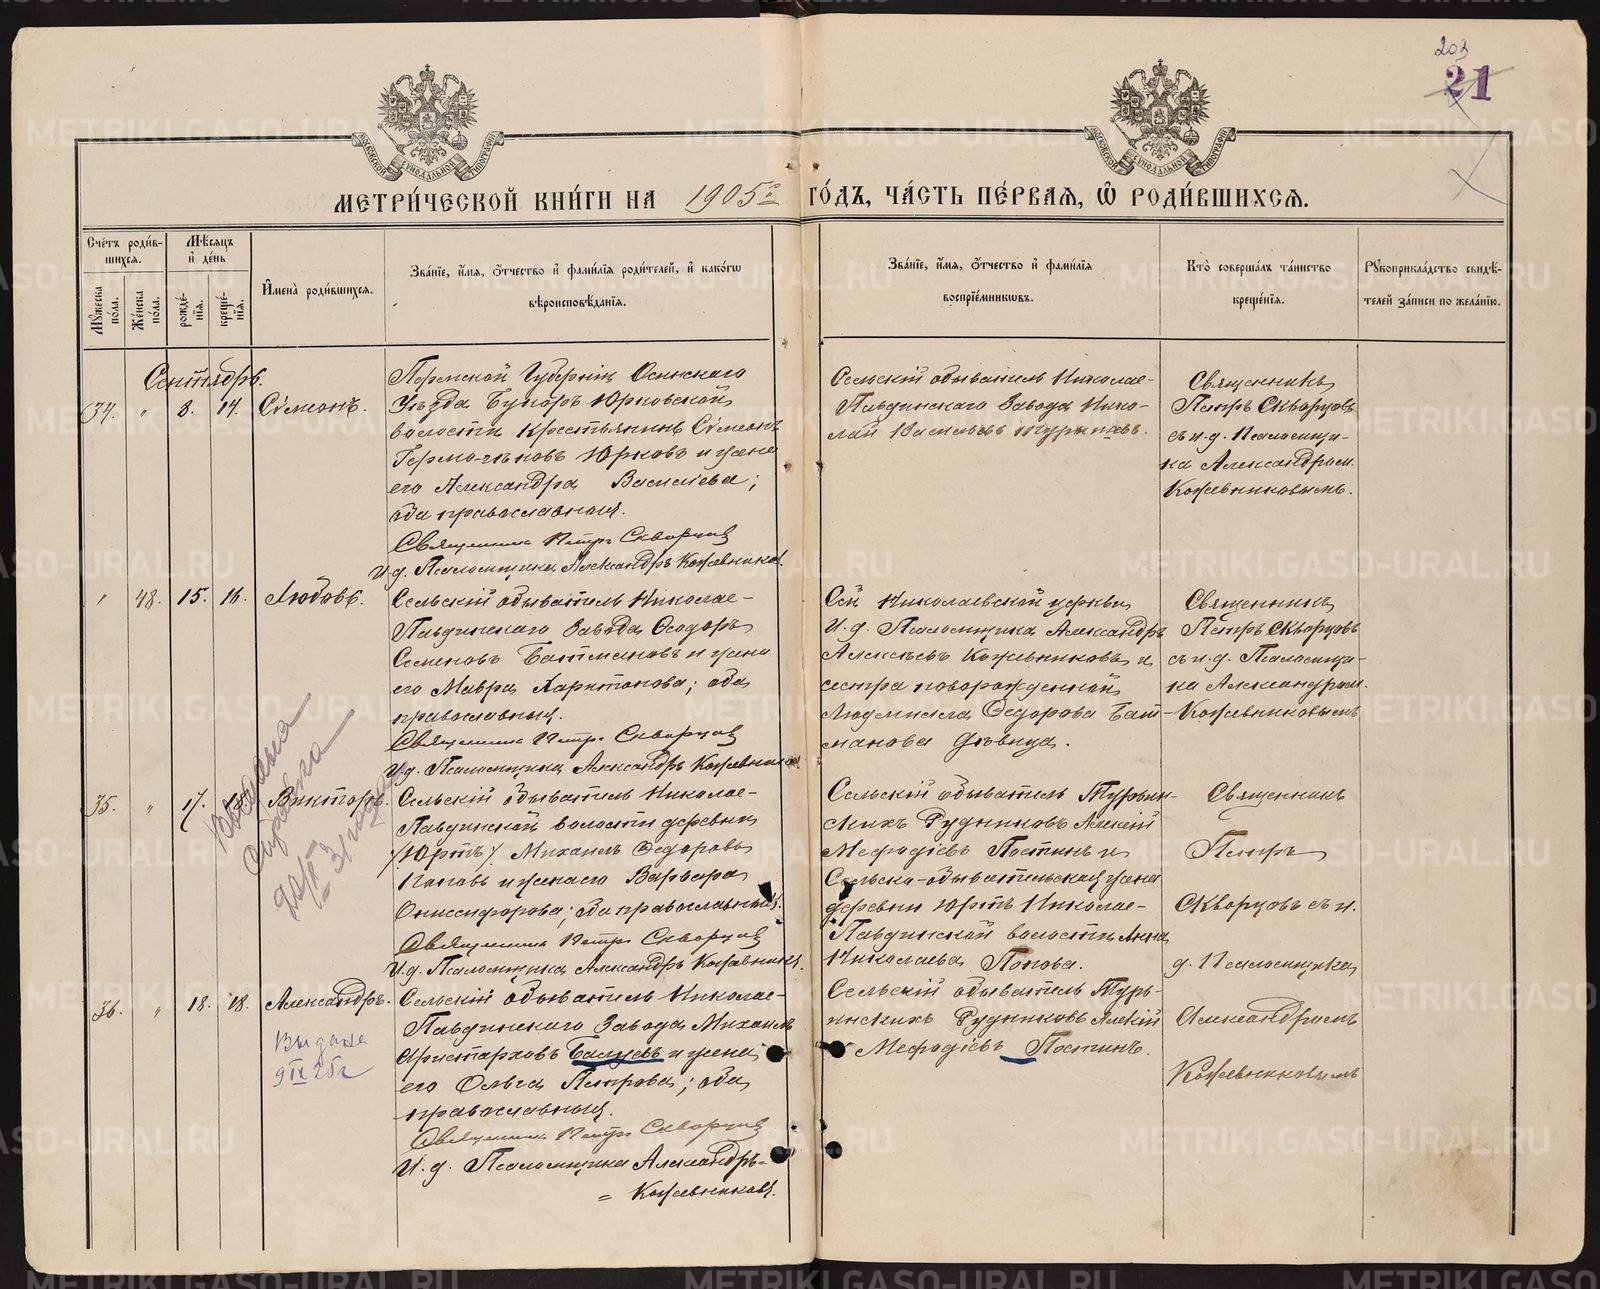 203
21
МОСКОВСКОЙ СѴНОДАЛЬНОЙ ТИПОГРАФІИ
МОСКОВСКОЙ СѴНОДАЛЬНОЙ ТИПОГРАФІИ
МЕТРИ́ЧЕСКОЙ КНИ́ГИ НА 1905го ГО́ДЪ, ЧА́СТЬ ПЕ́РВАЯ, Ѡ҆ РОДИ́ВШИХСЯ.
Сче́тъ роди́в-
шихся.
Му́жеска по́ла.
Же́нска по́ла.
Мѣ́сяцъ
и҆ де́нь
рожде́-
нїя.
креще́-
нїя.
И҆мена̀ роди́вшихся.
Зва́нїе, и҆́мя, ѻ҆́тчество и҆ фами́лїя роди́телей, и҆ како́гѡ
вѣроисповѣ́данїя.
Зва́нїе, и҆́мя, ѻ҆́тчество и҆ фами́лїя
воспрїе́мникѡвъ.
Кто̀ соверша́лъ та́инство
креще́нїя.
Рꙋкоприкла́дство свидѣ́-
телей за́писи по жела́нїю.
Сентябрь.
34. " 8. 14. Сѵмеонъ.
Пермской Губерніи Осинскаго
Уѣзда Букоръ Юрковской
волости крестьянинъ Сѵмеонъ
Юрковъ и жена
его Александра Василіева;
оба православныя.
Священникъ Петръ Скворцовъ
И.д. Псаломщика Александръ Кожевниковъ.
Сельскій обыватель Николае-
Павдинскаго Завода Нико-
лай Васильевъ
Священникъ
Петръ Скворцовъ
съ и.д. Псаломщи-
ка Александромъ
Кожевниковымъ.
" 48. 15. 16. Любовь.
Сельскій обыватель Николае-
Павдинскаго Завода Ѳеодоръ
Семеновъ Батмановъ и жена
его Мавра Харитонова; оба
православныя.
Священникъ Петръ Скворцовъ
И.д. Псаломщика Александръ Кожевниковъ.
Сей Николаевской церкви
И.д. Псаломщика Александръ
Алексѣевъ Кожевниковъ и
сестра новорожденной
Людмилла Ѳедорова Бат-
манова дѣвица.
Священникъ
Петръ Скворцовъ
съ и.д. Псаломщи-
ка Александром.
Кожевниковымъ
35. " 17. 18. Викторъ.
Сельскій обыватель Николае-
Павдинской волости деревни
/Юртъ/ Михаилъ Ѳедоровъ
Поповъ и жена его Варвара
Онисифорова; оба православныя.
Священникъ Петръ Скворцовъ
И.д. Псаломщика Александръ Кожевниковъ.
Сельскій обыватель Турьин-
скихъ Рудниковъ Алексій
Меѳодіевъ Постинъ и
Сельско-обывательская жена
деревни Юртъ Николае-
Павдинской волости Анна
Николаева Попова.
Священникъ
Петръ
Скворцовъ съ и.
д. Псаломщика
Александромъ
Кожевниковымъ
36. " 18. 18. Александръ.
Выдана
9 IX 25 г
Сельскій обыватель Николае-
Павдинскаго Завода Михаилъ
Аристарховъ Балуевъ и жена
его Ольга Петрова; оба
православныя.
Священникъ Петръ Скворцовъ
И.д. Псаломщика Александръ
= Кожевниковъ.
Сельскій обыватель Турь-
инскихъ Рудниковъ Алексій
Меѳодіевъ Постинъ.
METRIKI.GASO-URAL.RU